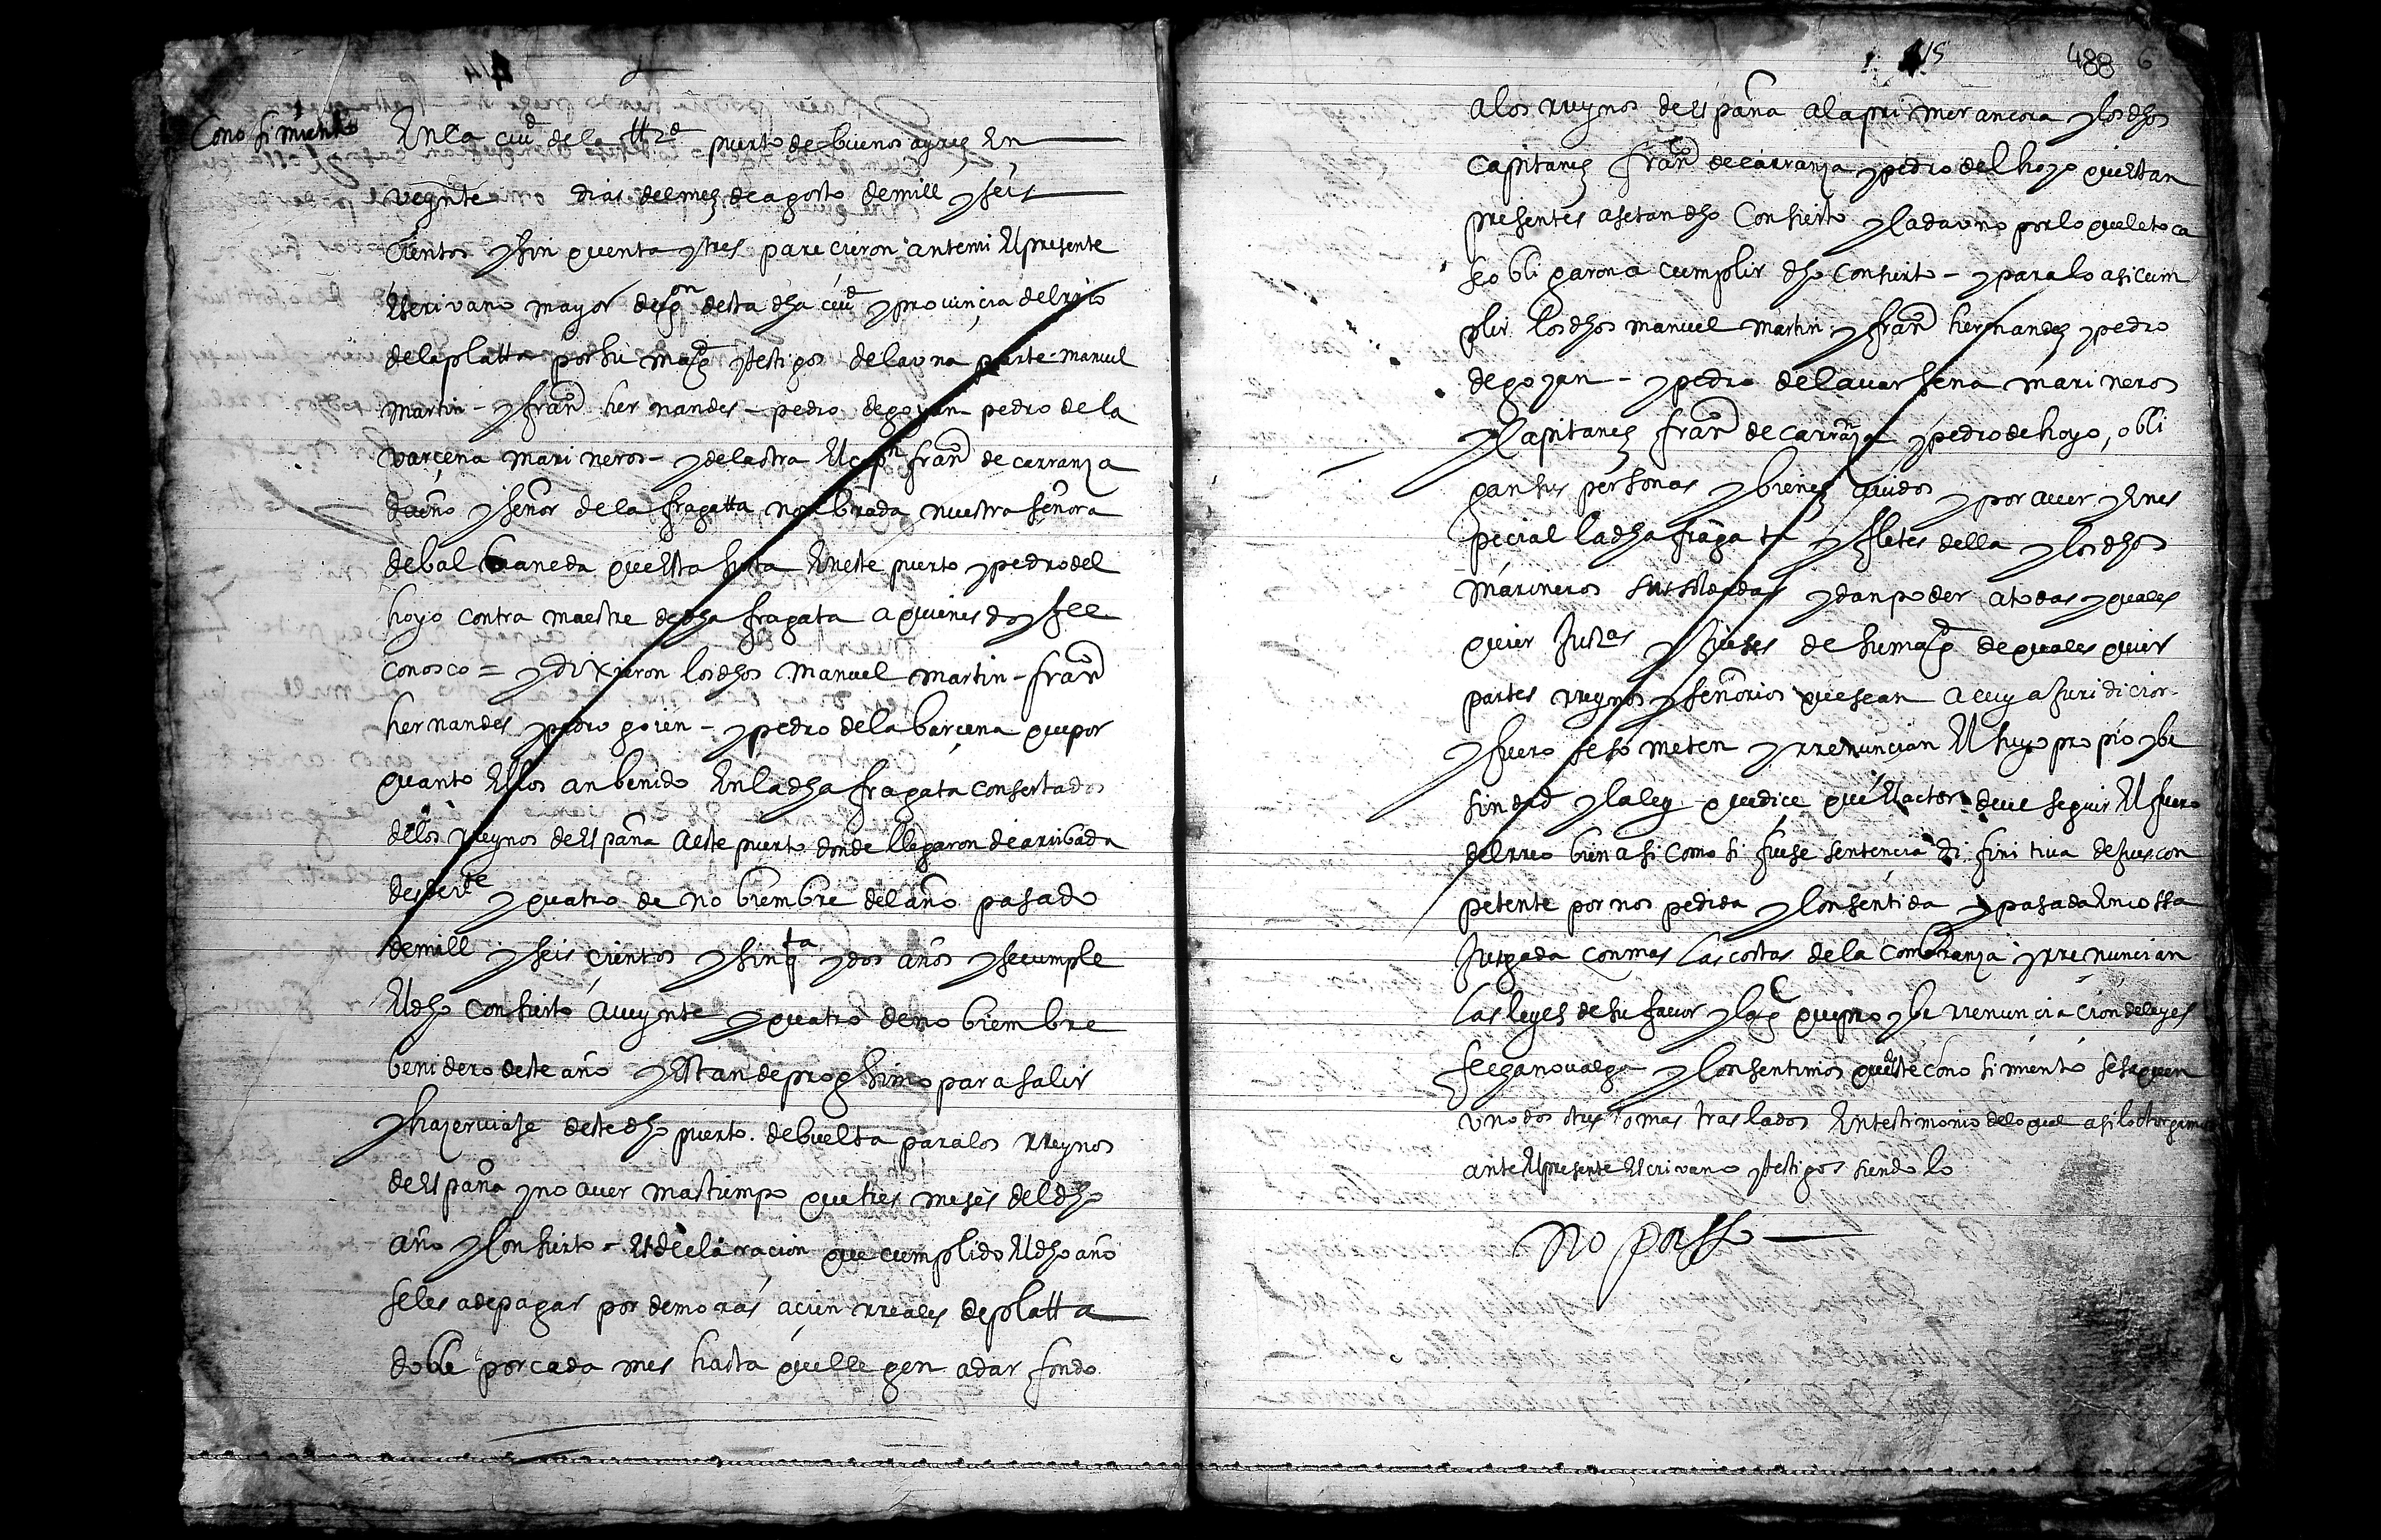 Cono simiento
En la ciud de la ttrd puerto de buenos ayres En
veynte dias del mes de agosto de mill y seis
cientos y sin quenta y tres parecieron ante mi El presente
Escrivano mayor de gon desta dha ciud y provincia del rrio
de la platta por su magd y testigos de la una parte manuel
martin - y franco hernandes - pedro de goyan pedro de la
varcena mari neros - y de la otra El capn franco de carranza
dueño y señor de la fragatta nonbrada nuestra señora
de bal baneda que Esta surta En este puerto y pedro del
hoyo contra maestre de dha fragata a quienes doy fee
conosco = y dixieron los dhos manuel martin - franco
hernandes y pedro goien - y pedro de la barcena que por
quanto Ellos an benido En la dha fragata consertados
de los rreynos de España a este puerto donde llegaron de arribada
desde vte y quatro de no biembre del año pasado
de mill y seis cientos y sinqta y dos años y se cumple
El dho consierto a veynte y quatro de no biembre
benidero deste año y Estan de proximo para salir
y hazer viaje deste dho puerto de buelta para los rreynos
de España y no aver mas tiempo que tres meses del dho
año y consierto - Es declaracion que cumplido El dho año
se les a de pagar por demoras a cien rreales de platta
doble por cada mes hasta que lle gen a dar fondo
415 488 6
a los rreynos de España a la pri mer ancora y los dhos
capitanes franco de carranza y pedro del hoyo que Estan
presentes asetan dho Consierto y Cada uno por lo que le toca
se obli garon a cumplir dho consierto - y para lo asi cum
plir los dhos manuel martin y franco hernandes y pedro
de goyan - y pedro de la var sena mari neros
y Capitanes franco de carranza y pedro de hoyo, obli
gan sus personas y bienes avidos y por aver y En es
pecial la dha fragata y fletes della y los dhos
marineros sus soldadas y dan poder a todas y quales
quier Justas y Jueses de su magd de quales quier
partes rreynos y señorios que sean a cuya Juridicion
y fuero se so meten y rrenuncian El suyo pro pio y be
sindad y la ley que dice que El actor deve seguir El fuero
del rreo bien asi como si fuese sentencia di fini tiva de Jues con
petente por nos pedida y Consentida y pasada En cossa
Jusgada con mas Las costas de la Cobranza y rrenuncian
Las leyes de su favor y la q que pro ybe rrenuncia cion de leyes
fecha no valga y Consentimos que Este cono simiento se saquen
uno dos tres o mas tras lados En testimonio de lo qual asi lo otorgamos
ante El presente Escrivano y testigos siendo lo
No passo